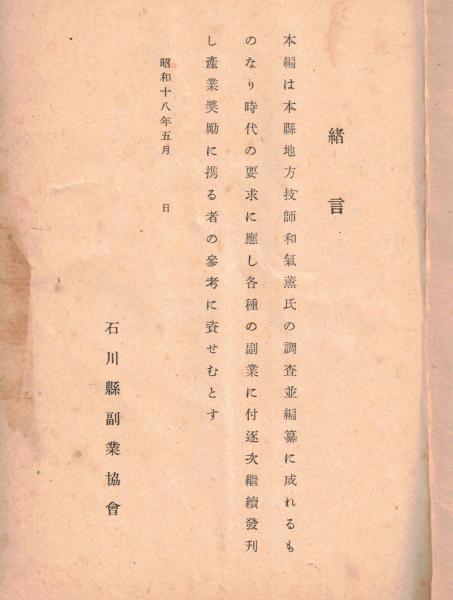 緒言
本編は本縣地方技師和氣薫氏の調査並編纂に成れるも
のなり時代の要求に應し各種の副業に付逐次繼續發刊
し產業奬勵に携る者の參考に資せむとす
昭和十八年五月　日
石川縣副業協會